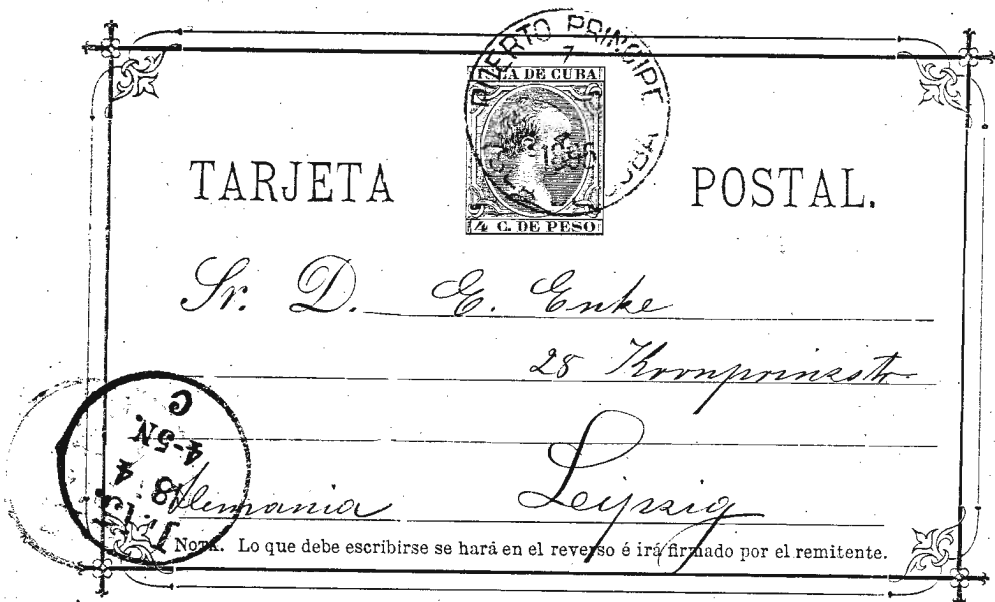 PUERTO PRINCIPE
7
ISLA DE CUBA
1895
CUBA
TARJETA POSTAL.
4 C. DE PESO
Sr. D. E. Enke
28 Kronprinzstr
C
4-5N.
4
18
Alemania Leipzig
NOTA. Lo que debe escribirse se hará en el reverso é irá firmado por el remitente.